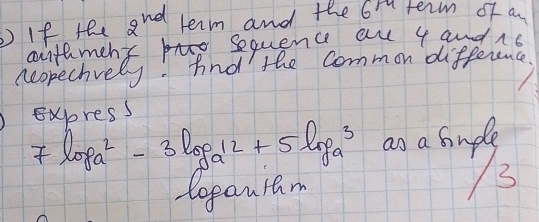 ) If the 2nd term and the 6th term of an
arithmetic sequence are 4 and 16
respectively. find the common difference.
) Express
7 loga² - 3 loga12 + 5 loga³ as a single
logarithm
/3